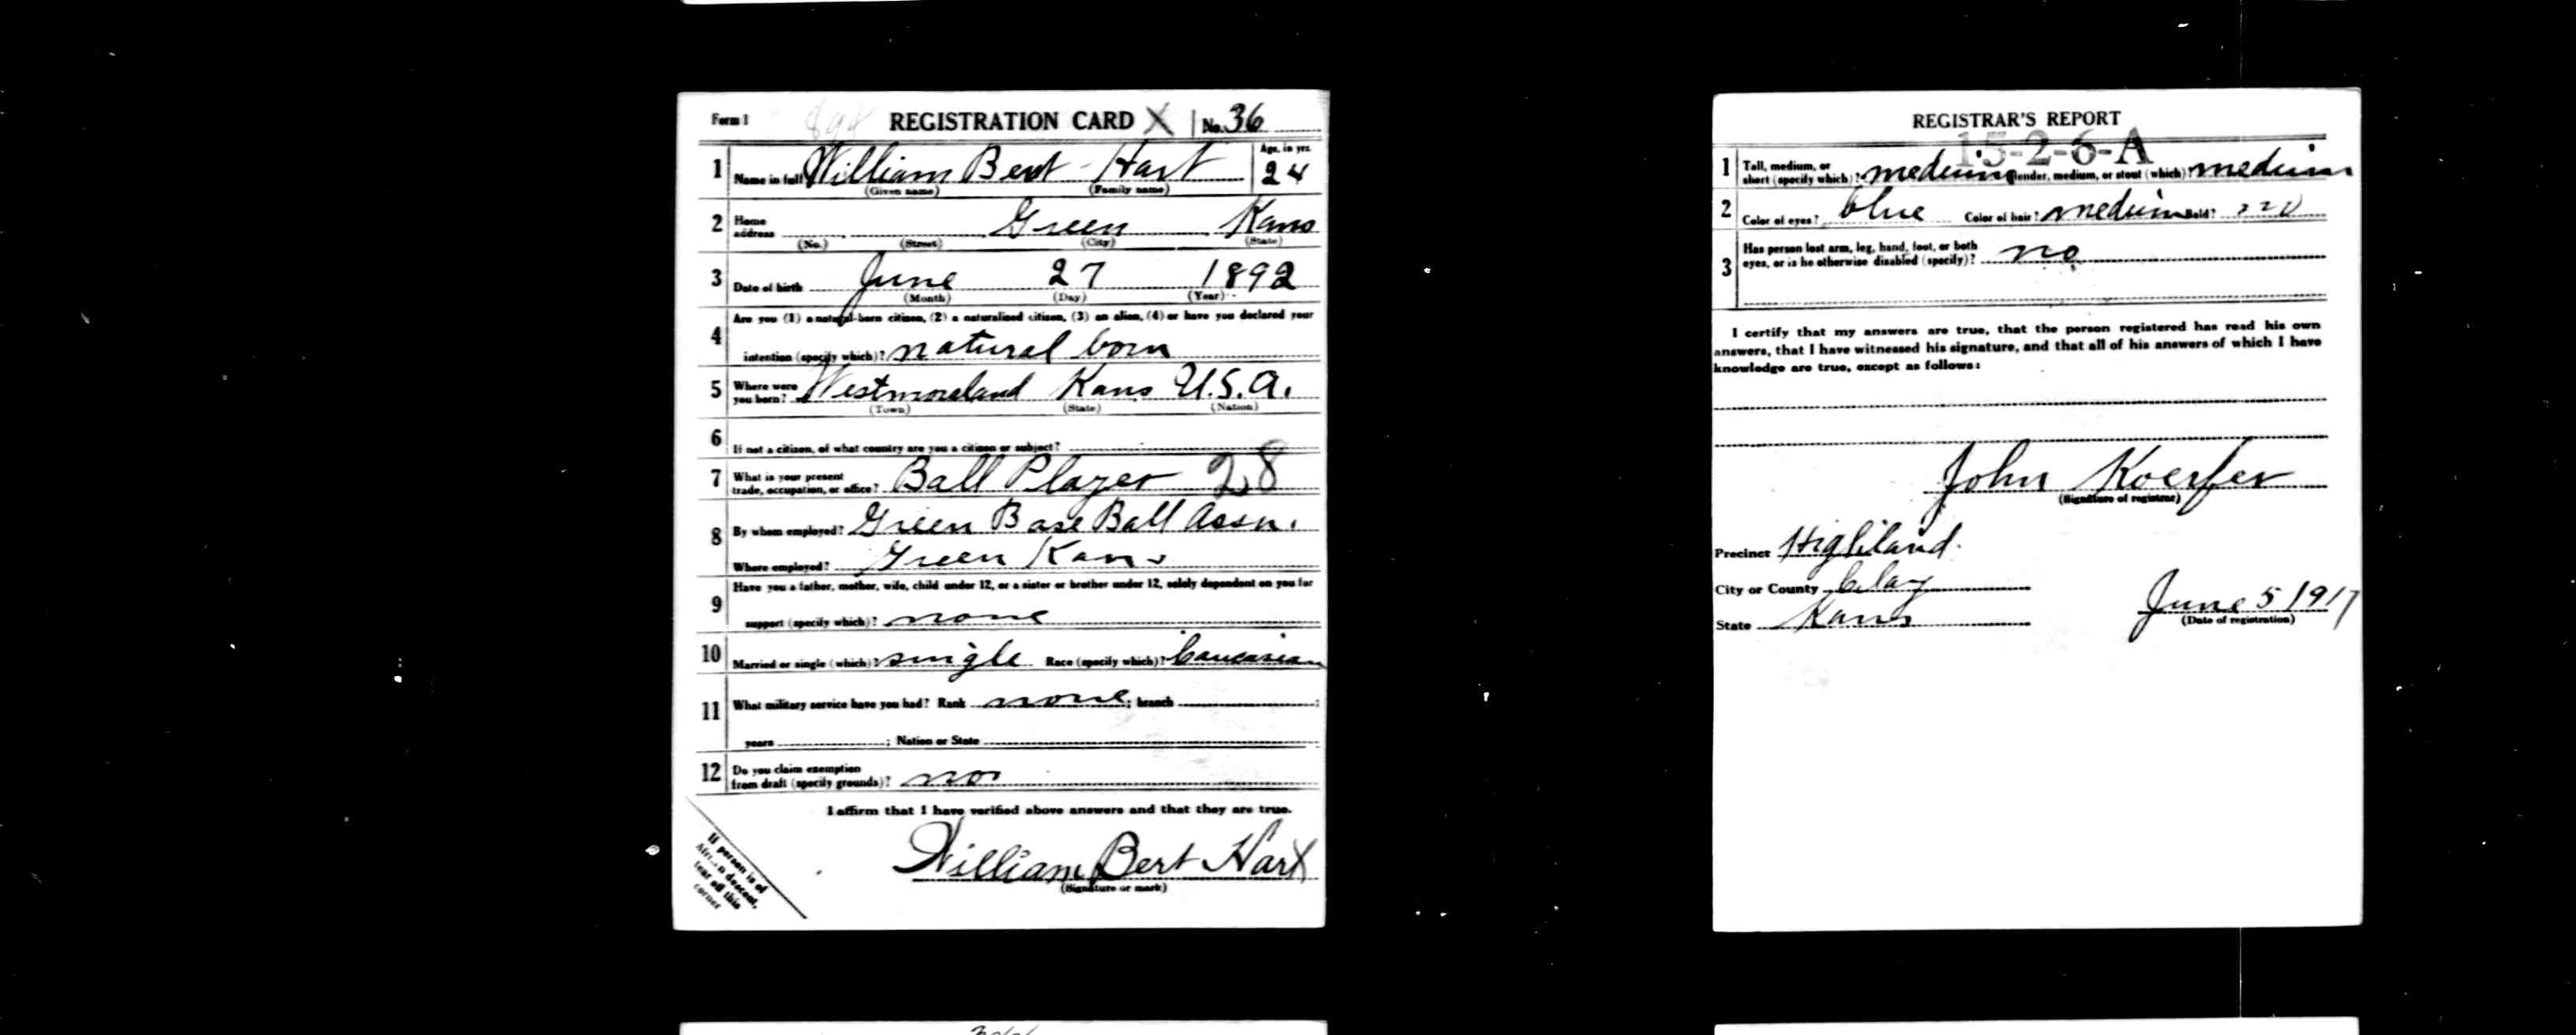 Form 1 REGISTRATION CARD X No. 36
1 Name in full William Bert Hart Age, in yrs. 24
(Given name) (Family name)
2 Home address Green Kans
(No.) (Street) (City) (State)
3 Date of birth June 27 1892
(Month) (Day) (Year)
4 Are you (1) a natural-born citizen, (2) a naturalized citizen, (3) an alien, (4) or have you declared your
intention (specify which)? natural born
5 Where were you born? Westmoreland Kans U.S.A.
(Town) (State) (Nation)
6 If not a citizen, of what country are you a citizen or subject?
7 What is your present trade, occupation, or office? Ball Player 28
8 By whom employed? Green Base Ball Assn.
Where employed? Green Kans
9 Have you a father, mother, wife, child under 12, or a sister or brother under 12, solely dependent on you for
support (specify which)? none
10 Married or single (which)? single Race (specify which)? Caucasian
11 What military service have you had? Rank none; branch ;
years ; Nation or State
12 Do you claim exemption
from draft (specify grounds)? no
I affirm that I have verified above answers and that they are true.
William Bert Hart
(Signature or mark)
If person is of
African descent,
tear off this
corner
REGISTRAR'S REPORT
15-2-6-A
1 Tall, medium, or
short (specify which)? medium Slender, medium, or stout (which)? medium
2 Color of eyes? blue Color of hair? medium Bald? no
3 Has person lost arm, leg, hand, foot, or both
eyes, or is he otherwise disabled (specify)? no
I certify that my answers are true, that the person registered has read his own
answers, that I have witnessed his signature, and that all of his answers of which I have
knowledge are true, except as follows:
John Koerfer
(Signature of registrar)
Precinct Highland
City or County Clay
State Kans
June 5 1917
(Date of registration)